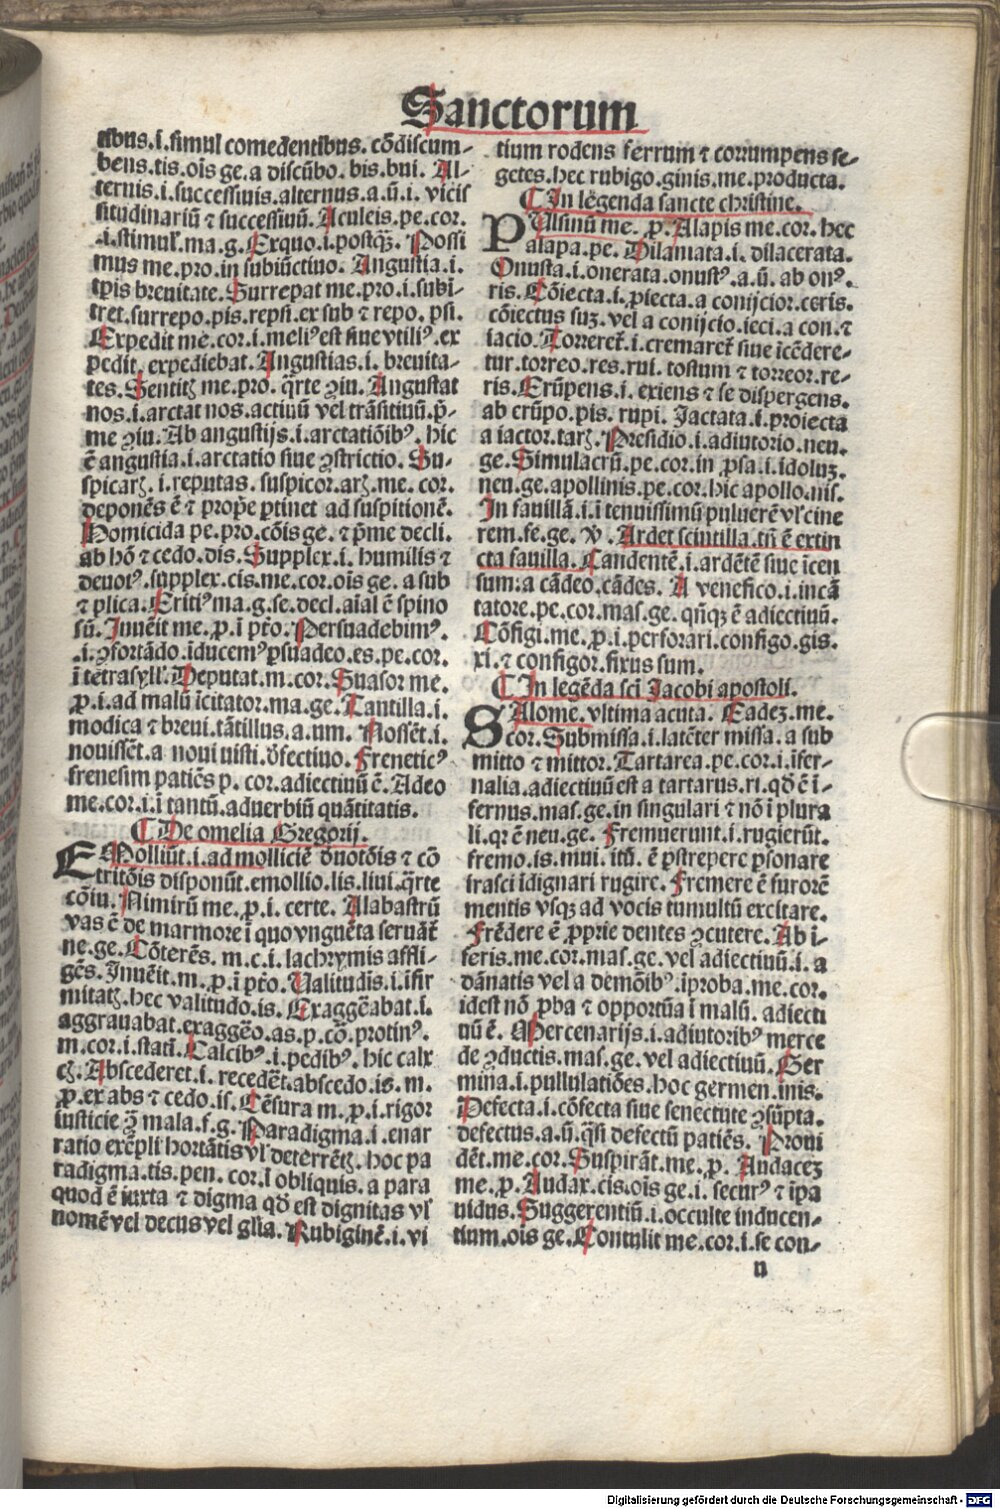 Sanctorum
tibus.i.simul comedentibus. cōdiscum-
bens.tis.oīs ge.a discūbo.bis.bui. Al-
ternis.i.successiuis.alternus.a.ū.i. vicis
situdinariū ⁊ successiuū. Aculeis.pe.cor.
.i.stimul.ma.g. Exquo.i.postqꝫ. Possi
mus me.pro.in subiūctiuo. Angustia.i.
tꝑis breuitate. Surrepat me.pro.i.subi-
tret.surrepo.pis.repsi.ex sub ⁊ repo. psi.
Expedit me.cor.i.meliꝰ est siue vtiliꝰ.ex
pedit. expediebat. Angustias.i. breuita-
tes. Sentitꝭ me.pro. q̄rte ꝯiu. Angustat
nos.i.arctat nos.actiuū vel trāsitiuū.p̄-
me ꝯiu. Ab angustijs.i.arctatiōibꝰ. hic
ē angustia.i.arctatio siue ꝯstrictio. Su-
spicarꝭ.i.reputas. suspicor.arꝭ.me. cor.
deponēs ē ⁊ propē ꝑtinet ad suspitionē.
Homicida pe.pro.cōis ge. ⁊ p̄me decli.
ab hō ⁊ cedo.dis. Supplex.i. humilis ⁊
deuotꝰ.supplex.cis.me.cor.oīs ge. a sub
⁊ plica. Eritiꝰ ma.g.se.decl.aīal ē spino
sū. Inuēit me. ꝓ.i p̄to. Persuadebimꝰ.
.i.ꝯfortādo īducemꝰ ꝑsuadeo.es.pe.cor.
ī tetrasyll. Deputat.m.cor. Suasor me.
ꝓ.i.ad malū īcitator.ma.ge. Tantilla.i.
modica ⁊ breui.tātillus.a.um. Nossēt.i.
nouissēt.a noui uisti ꝺfectiuo. Freneticꝰ
frenesim patiēs p. cor.adiectiuū ē. Adeo
me.cor.i.i tantū.aduerbiū quātitatis.
De omelia Gregorij.
EMolliūt.i.ad molliciē ꝺuotōis ⁊ cō
tritōis disponūt.emollio.lis.liui.q̄rte
cōiu. Nimirū me. ꝓ.i. certe. Alabastrū
vas ē de marmore ī quo vnguēta seruāt
ne.ge. Cōterēs. m.c.i.lachrymis affli-
gēs. Inuēit.m. ꝓ.i p̄to. Valitudīs.i.īfir
mitatꝭ.hec valitudo.is. Exaggēabat.i.
aggrauabat.exaggēo.as.p.cō.protinꝰ.
m.cor.i.stati. Calcibꝰ.i.pedibꝰ.hic calx
cꝭ. Abscederet.i. recedēt.abscedo.is. m.
ꝓ.ex abs ⁊ cedo.is. Cēsura m. ꝓ.i.rigor
iusticie ꝯ̄ mala.f.g. Paradigma.i.enar
ratio exēpli hortātis vl deterrētꝭ. hoc pa
radigma.tis.pen. cor.ī obliquis.a para
quod ē iuxta ⁊ digma qd̄ est dignitas vl
nomē vel decus vel gl̄ia. Rubiginē.i.vi
tium rodens ferrum ⁊ corrumpens se-
getes.hec rubigo.ginis.me.producta.
In legenda sancte christine.
PUlsinū me. ꝓ. Alapis me.cor. hec
alapa.pe. Dilamata.i.dilacerata.
Onusta.i.onerata.onustꝰ.a.ū. ab onꝰ.
ris. Cōiecta.i.ꝓiecta.a conijcior.ceris.
cōiectus suꝫ.vel a conijcio.ieci.a con.⁊
iacio. Torreret̄.i.cremaret̄ siue īcēdere-
tur.torreo.res.rui. tostum ⁊ torreor.re-
ris. Erūpens.i. exiens ⁊ se dispergens.
ab erūpo.pis. rupi. Jactata.i.proiecta
a iactor.tarꝭ. Presidio.i.adiutorio.neu.
ge. Simulacrū.pe.cor.in ꝓsa.i.īdoluꝫ.
neu.ge.apollinis.pe.cor.hic apollo.nis.
In fauillā.i.ī tenuissimū puluerē vl cine
rem.fe.ge. Ꟶ. Ardet scintilla.tn̄ ē extin
cta fauilla. Candentē.i.ardētē siue īcen
sum.a cādeo.cādes. A venefico.i.incā
tatore.pe.cor.mas.ge. qn̄qꝫ ē adiectiuū.
Cōfigi.me. ꝓ.i.perforari.configo.gis.
xi.⁊ configor.fixus sum.
In legēda scī Jacobi apostoli.
SAlome.vltima acuta. Eadeꝫ.me.
cor. Submissa.i.latēter missa.a sub
mitto ⁊ mittor. Tartarea.pe.cor.i.īfer-
nalia.adiectiuū est a tartarus.ri.qd̄ ē ī-
fernus.mas.ge.in singulari ⁊ nō ī plura
li.qr ē neu.ge. Fremuerunt.i.rugierūt.
fremo.is.mui.itū. ē ꝑstrepere ꝑsonare
irasci īdignari rugire. Fremere ē furorē
mentis vsqꝫ ad vocis tumultū excitare.
Frēdere ē ꝓprie dentes ꝯcutere. Ab ī-
feris.me.cor.mas.ge.vel adiectiuū.i. a
dānatis vel a demōibꝰ.īproba.me.cor.
idest nō ꝓba ⁊ opportūa ī malū. adiecti
uū ē. Mercenarijs.i.adiutoribꝰ merce
de ꝯductis.mas.ge.vel adiectiuū. Ger
mina.i.pullulatiōes.hoc germen.inis.
Defecta.i.cōfecta siue senectute ꝯsūpta.
defectus.a.ū.q̄si defectū patiēs. Proui
dēt.me.cor. Suspirāt.me. ꝓ. Audaceꝫ
me. ꝓ. Audax.cis.oīs ge.i. securꝰ ⁊ īpa
uidus. Suggerentiū.i.occulte inducen-
tium.oīs ge. Contulit me.cor.i.se con-
n
Digitalisierung gefördert durch die Deutsche Forschungsgemeinschaft - DFG